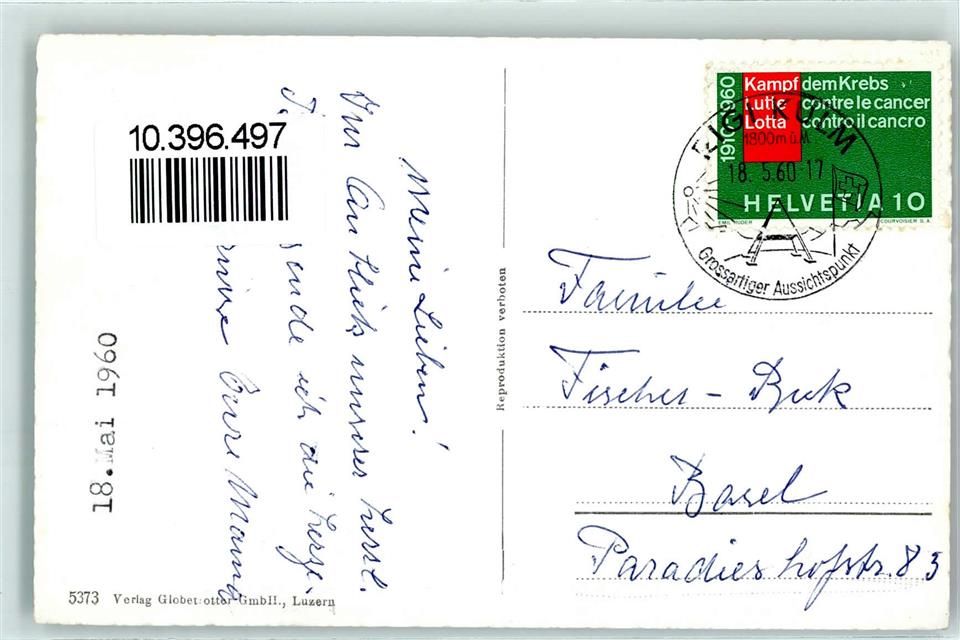 10.396.497
Meine Lieben!
Von
unserer herzl.
sende ich die herzl.
Eure Mama
18.Mai 1960
5373 Verlag Globetrotter GmbH., Luzern
Reproduktion verboten
1910 1960
Kampf dem Krebs
Lutte contre le cancer
Lotta contro il cancro
HELVETIA 10
EMIL RUDER
COURVOISIER S.A.
RIGI KULM
1800m ü.M.
18.5.60-17
Grossartiger Aussichtspunkt
Familie
Fischer - Buk
Basel
Paradieshofstr. 83